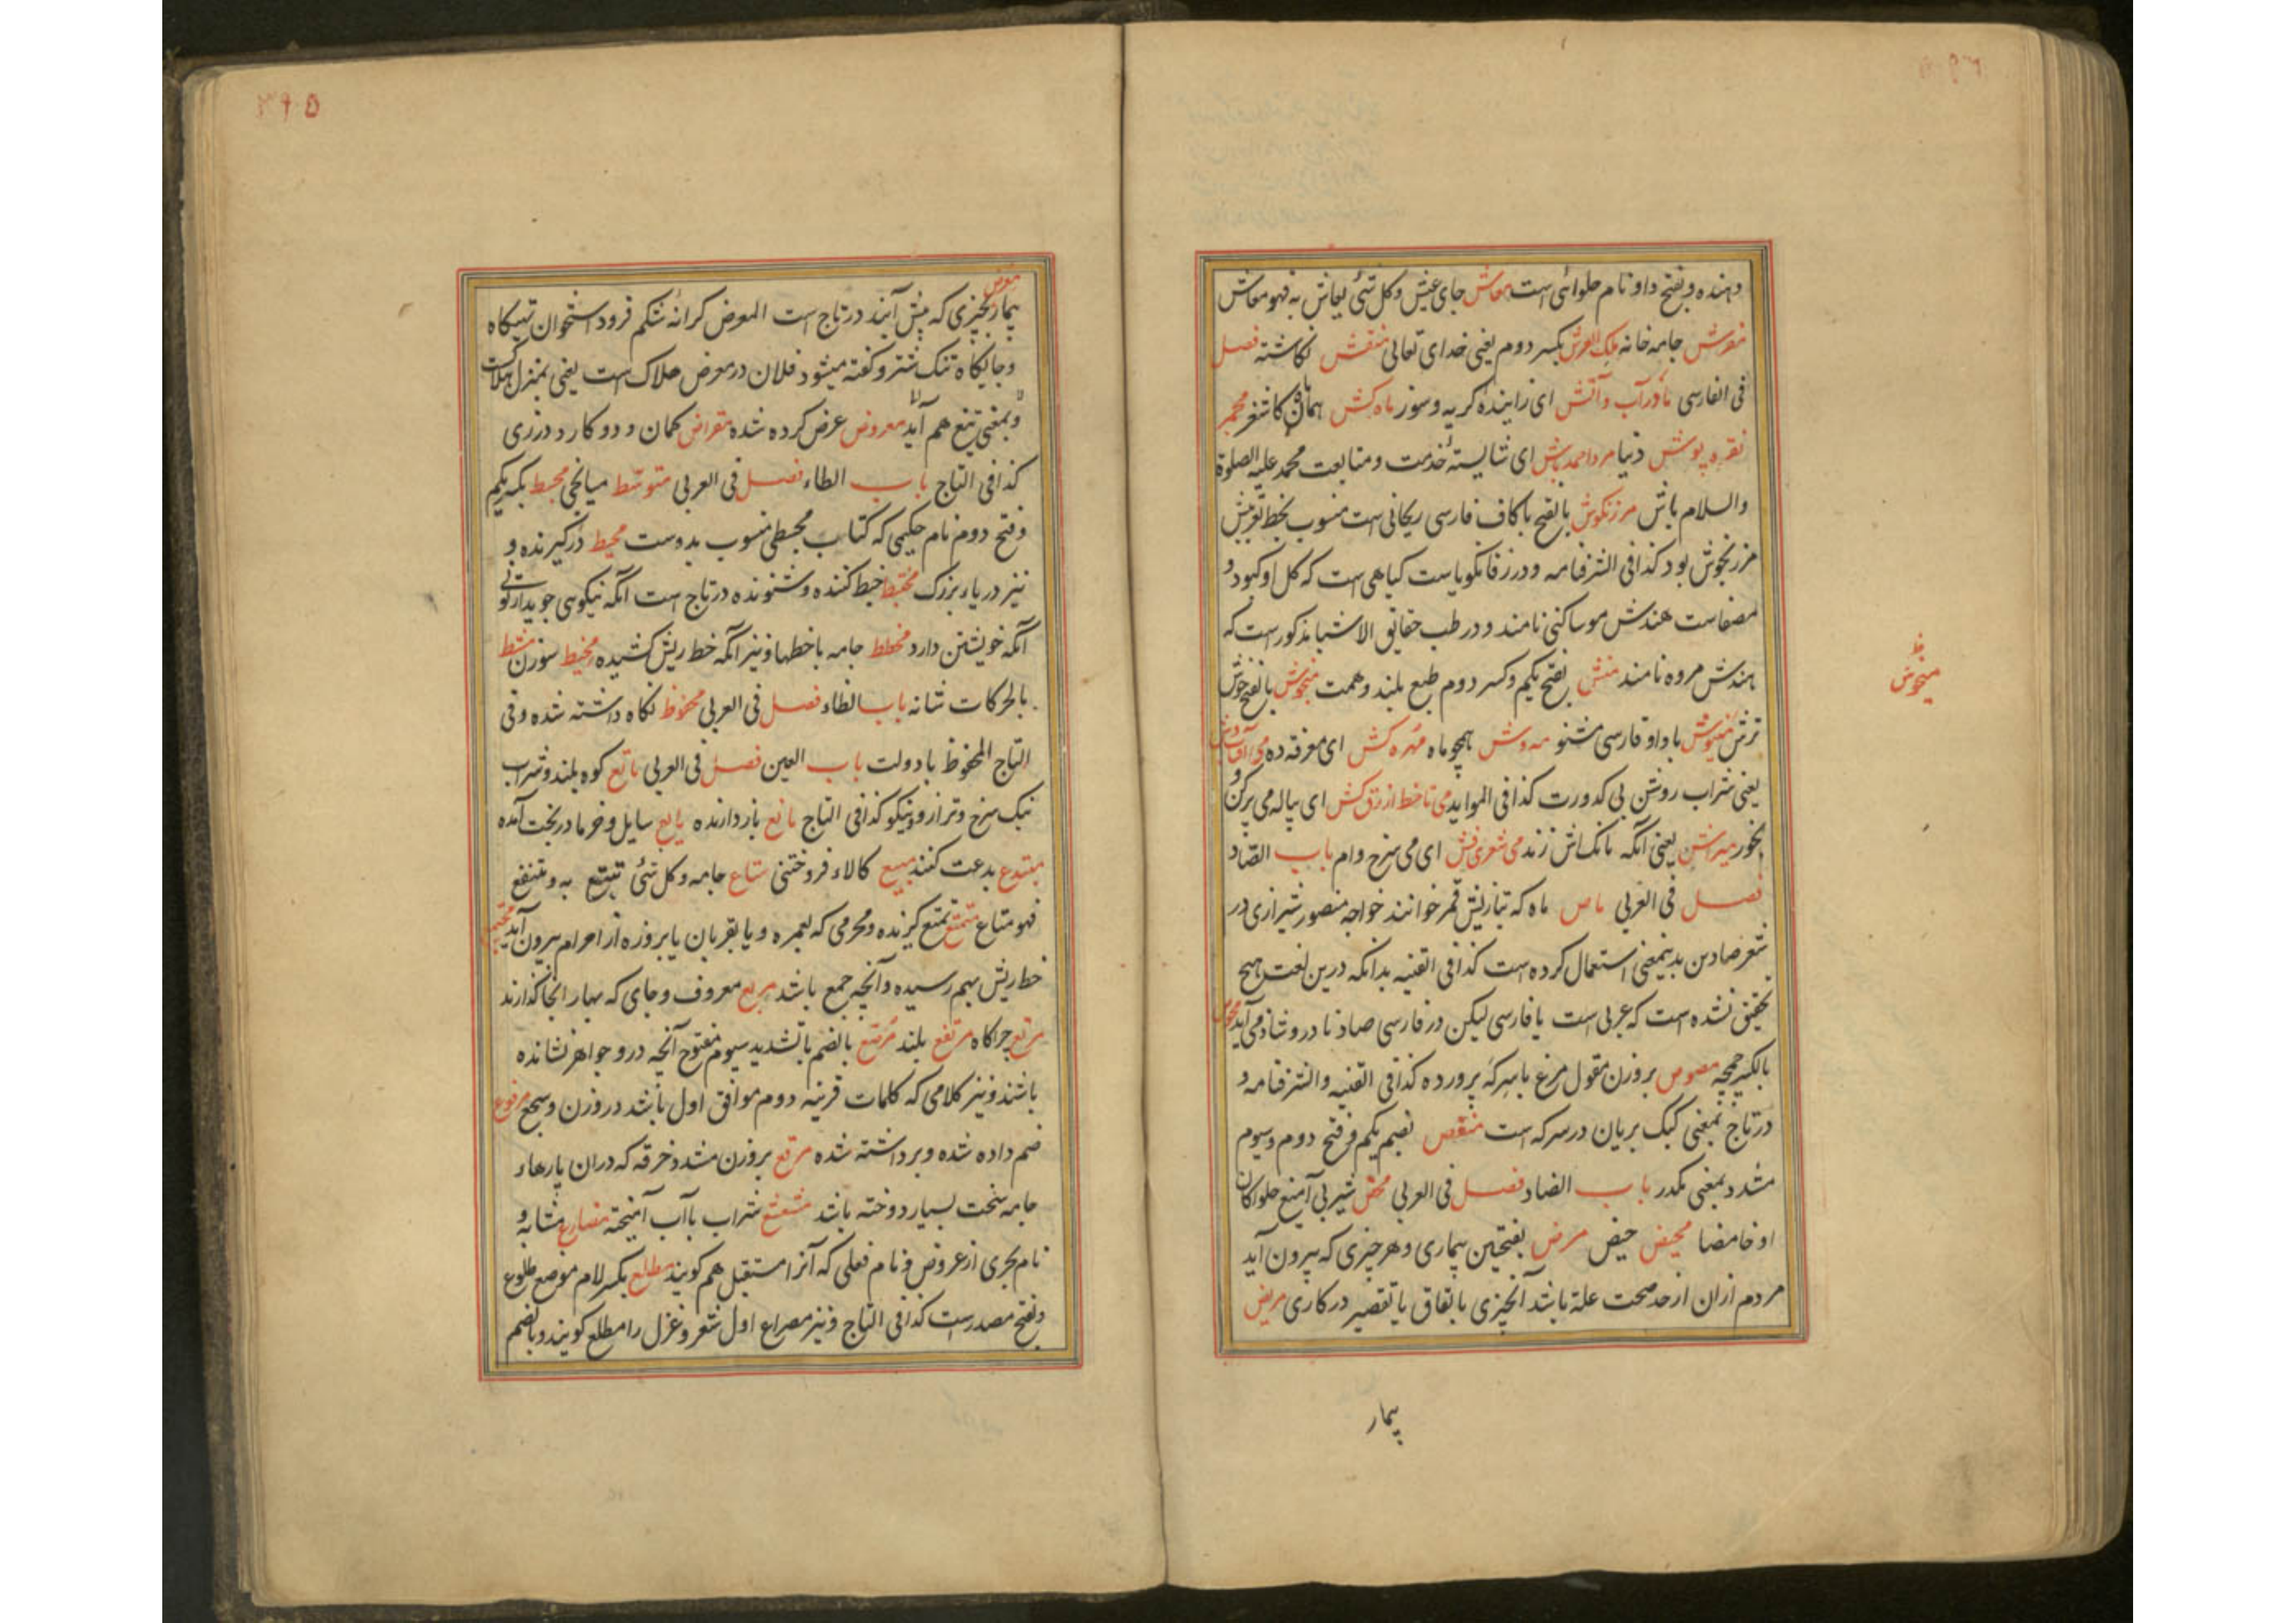 دهنده و بفتح داو نام حلوائی است معاش جای عیش و کل شئ یعاش به فهو معاش
مفرش جامه خانه ملک العرش بکسر دوم یعنی خدای تعالی منقش نکاشته فصل
فی الفارسی مادر آب و آتش ای زاینده کریه و سوز ماه کش همان کاشغر مجمر
نقره پوش دنیا مرد احمد باش ای شایسته خدمت و متابعت محمد علیه الصلوة
والسلام باش مرزنکوش بالفتح با کاف فارسی ریحانی است منسوب بخط تعریبش
مرزنجوش بود کذا فی الشرفنامه و در زفانکویاست کیاهی ست که کل او کبود و
مصفاست هندش موساکنی نامند و در طب حقایق الاشیا مذکور ست که
هندش مروه نامند منش بفتح یکم و کسر دوم طبع بلند و همت میخوش بالفتح خوش
ترش مغیوش با واو فارسی مشنو مه وش همچو ماه مهره کش ای معرفة ده می آفتاب وش
یعنی شراب روشن بی کدورت کذا فی الموایدمی تا خط ازرق کش ای پیاله می پر کن و
بخور میراش یعنی آنکه بانک باش زند می شعری فش ای می سرخ وام باب الصاد
فصل فی العربی ماص ماه که تبازیش قمر خوانند خواجه منصور شیرازی در
شعر صادین بدینمعنی استعمال کرده است کذا فی القنیه بدانکه درین لغت هیچ
تحقیق نشده است که عربی است یا فارسی لیکن در فارسی صاد نادر و شاذ می آید
بالکسر چمچه مصوص بر وزن مقول مرغ با سرکه پرورده کذا فی القنیه والشرفنامه و
در تاج بمعنی کبک بریان در سرکه است منغص بضم یکم و فتح دوم و سیوم
مشدد بمعنی مکدر باب الضاد فصل فی العربی محض شیر بی آمیغ حلوا کان
او حامضا محیض حیض مرض بفتحین بیماری و هر چیزی که بیرون آید
مردم ازان از حد صحت علة باشد آنچیزی یا نفاق یا تقصیر در کاری مریض
میخوش
بیمار
۳۹۵
معرض
بیمار بچیزی که پیش آیند در تاج است المعرض کرانه شکم فرود استخوان تهیکاه
و جایکاه تنک شتر و کفته میشود فلان در معرض هلاک است یعنی بمنزل هلاکست
و بمعنی تیغ هم آید معروض عرض کرده شده مقراض کمان و دو کارد درزی
کذا فی التاج باب الطاء فصل فی العربی متوسط میانجی مجبط بکسر یکم
و فتح دوم نام حکیمی که کتاب مجسطی منسوب بدوست محیط درکیرنده و
نیز دریاء بزرک مختبط خبط کننده و شنونده در تاج است آنکه نیکوسی جوید از توبی
آنکه خویشتن دارد مخطط جامه با خطها و نیز آنکه خط ریش کشیده مخیط سوزن مشط
بالحرکات شانه باب الظاء فصل فی العربی محفوظ نکاه داشته شده و فی
التاج المحفوظ با دولت باب العین فصل فی العربی ماتع کوه بلند و شراب
نیک سرخ و ترازو و نیکو کذا فی التاج مانع بازدارنده مایع سایل و خرما در یخت آمده
مبتدع بدعت کنند مبیع کالاء فروختنی متاع جامه و کل شئ تمتع به و منتفع
فهو متاع متمتع تمتع کیرنده و محرمی که بعمره و یا بقربان یا بروزه از احرام بیرون آید مجتمع
خط ریش بهم رسیده و آنچه جمع باشد مربع معروف و جای که بهار انجا کذارند
مرتع چراکاه مرتفع بلند مرصع بالضم با تشدید سیوم مفتوح آنچه درو جواهر نشانده
باشند و نیز کلامی که کلمات قرینه دوم موافق اول باشد در وزن و سجع مرفوع
ضم داده شده و برداشته شده مرقع بر وزن مشدد خرقه که دران پارهاء
جامه سخت بسیار دوخته باشد مشعشع شراب با آب آمیخته مضارع مشابه و
نام بحری از عروض و نام فعلی که آنرا مستقبل هم کویند مطلع بکسر لام موضع طلوع
و بفتح مصدر است کذا فی التاج و نیز مصراع اول شعر و غزل را مطلع کویند و بالضم